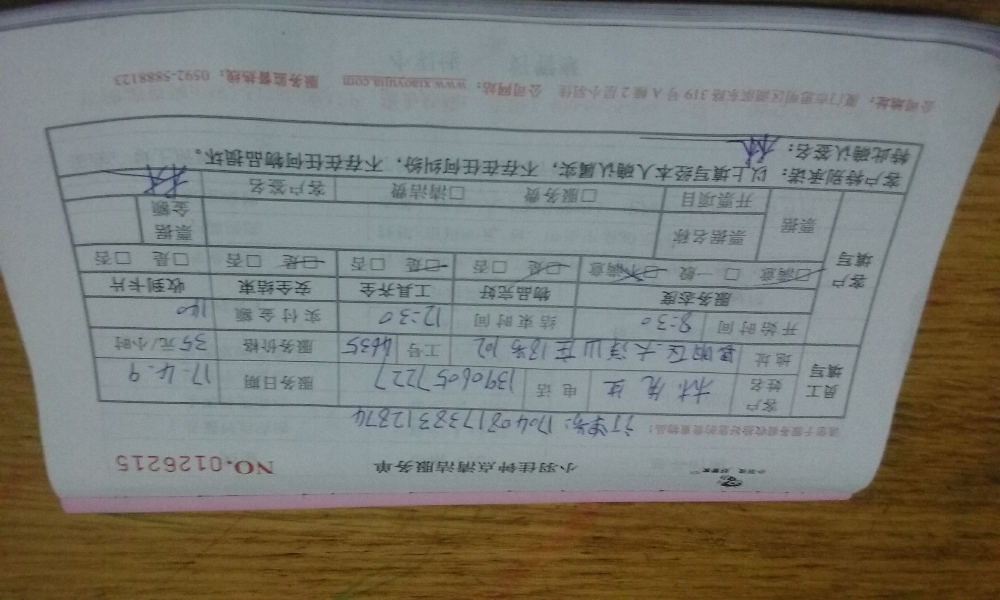 小羽佳钟点清洁服务单 NO.0126215
请您于服务前收拾好您的贵重物品! 订单号: 170408173831 2874
员工填写
客户姓名 林先生 电话 13906057227 服务日期 17.4.9
地址 思明区大洋山庄18号102 工号 4635 服务价格 35元/小时
开始时间 8:30 结束时间 12:30 实付金额 140
客户填写
服务态度 物品完好 工具齐全 安全结束 收到卡片
□满意 □一般 □不满意 □是 □否 □是 □否 □是 □否 □是 □否
票据 票据名称 票据金额
开票项目 □服务费 □清洁费 客户签名 林
客户特别承诺:以上填写经本人确认属实,不存在任何纠纷,不存在任何物品损坏。
特此确认签名: 林
公司地址:厦门市思明区湖滨东路319号A幢2层小羽佳 公司网站:www.xiaoyujia.com 服务监督热线:0592-5888123